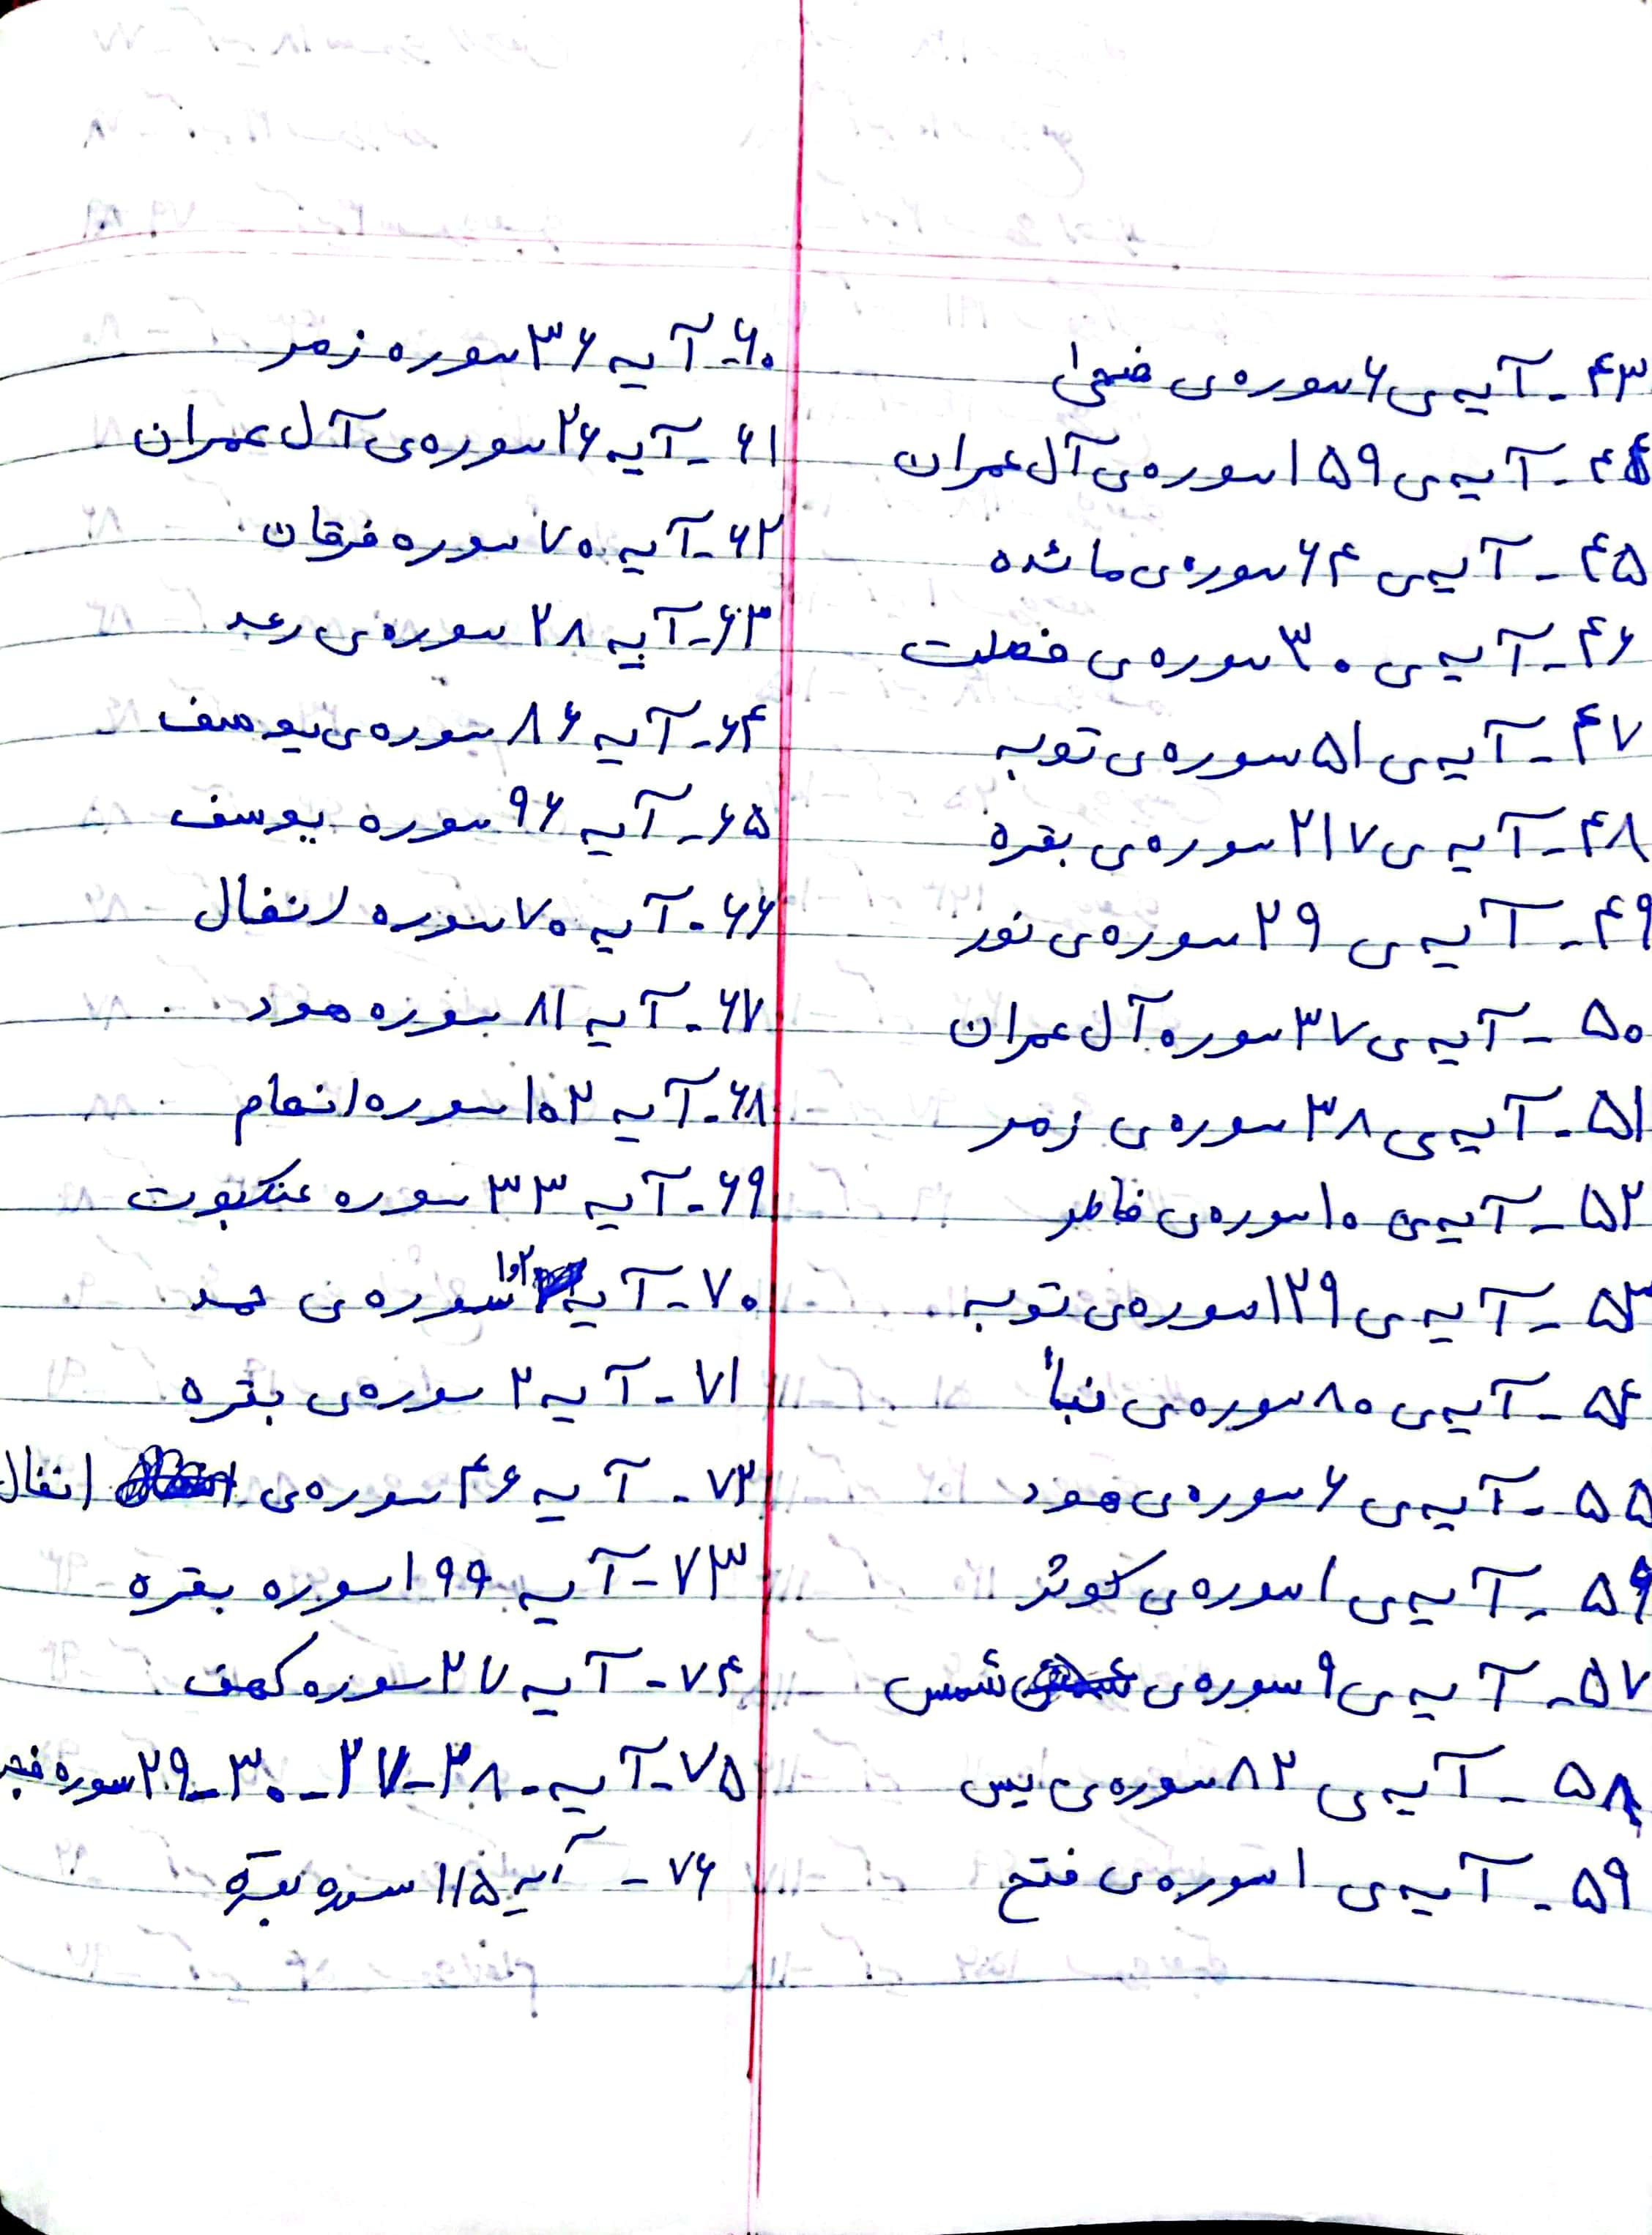 ۴۳ - آیه‌ی ۶ سوره‌ی ضحی
۴۴ - آیه‌ی ۱۵۹ سوره‌ی آل عمران
۴۵ - آیه‌ی ۶۴ سوره‌ی مائده
۴۶ - آیه‌ی ۳۰ سوره‌ی فصلت
۴۷ - آیه‌ی ۵۱ سوره‌ی توبه
۴۸ - آیه‌ی ۲۱۷ سوره‌ی بقره
۴۹ - آیه‌ی ۲۹ سوره‌ی نور
۵۰ - آیه‌ی ۳۷ سوره آل عمران
۵۱ - آیه‌ی ۳۸ سوره‌ی زمر
۵۲ - آیه‌ی ۱۰ سوره‌ی فاطر
۵۳ - آیه‌ی ۱۲۹ سوره‌ی توبه
۵۴ - آیه‌ی ۸۰ سوره‌ی نبأ
۵۵ - آیه‌ی ۶ سوره‌ی هود
۵۶ - آیه‌ی ۱ سوره‌ی کوثر
۵۷ - آیه‌ی ۹ سوره‌ی شمس
۵۸ - آیه‌ی ۸۲ سوره‌ی یس
۵۹ - آیه‌ی ۱ سوره‌ی فتح
۶۰ - آیه ۳۶ سوره زمر
۶۱ - آیه ۲۶ سوره‌ی آل عمران
۶۲ - آیه ۷۰ سوره فرقان
۶۳ - آیه ۲۸ سوره‌ی رعد
۶۴ - آیه ۸۶ سوره‌ی یوسف
۶۵ - آیه ۹۶ سوره یوسف
۶۶ - آیه ۷۰ سوره انفال
۶۷ - آیه ۸۱ سوره هود
۶۸ - آیه ۱۰۲ سوره انعام
۶۹ - آیه ۳۳ سوره عنکبوت
۷۰ - آیه ۱و۲ سوره‌ی حمد
۷۱ - آیه ۲ سوره‌ی بقره
۷۲ - آیه ۴۶ سوره‌ی انفال
۷۳ - آیه ۱۹۹ سوره بقره
۷۴ - آیه ۲۷ سوره کهف
۷۵ - آیه - ۲۸ - ۲۷ - ۳۰ - ۲۹ سوره فجر
۷۶ - آیه ۱۱۵ سوره بقره